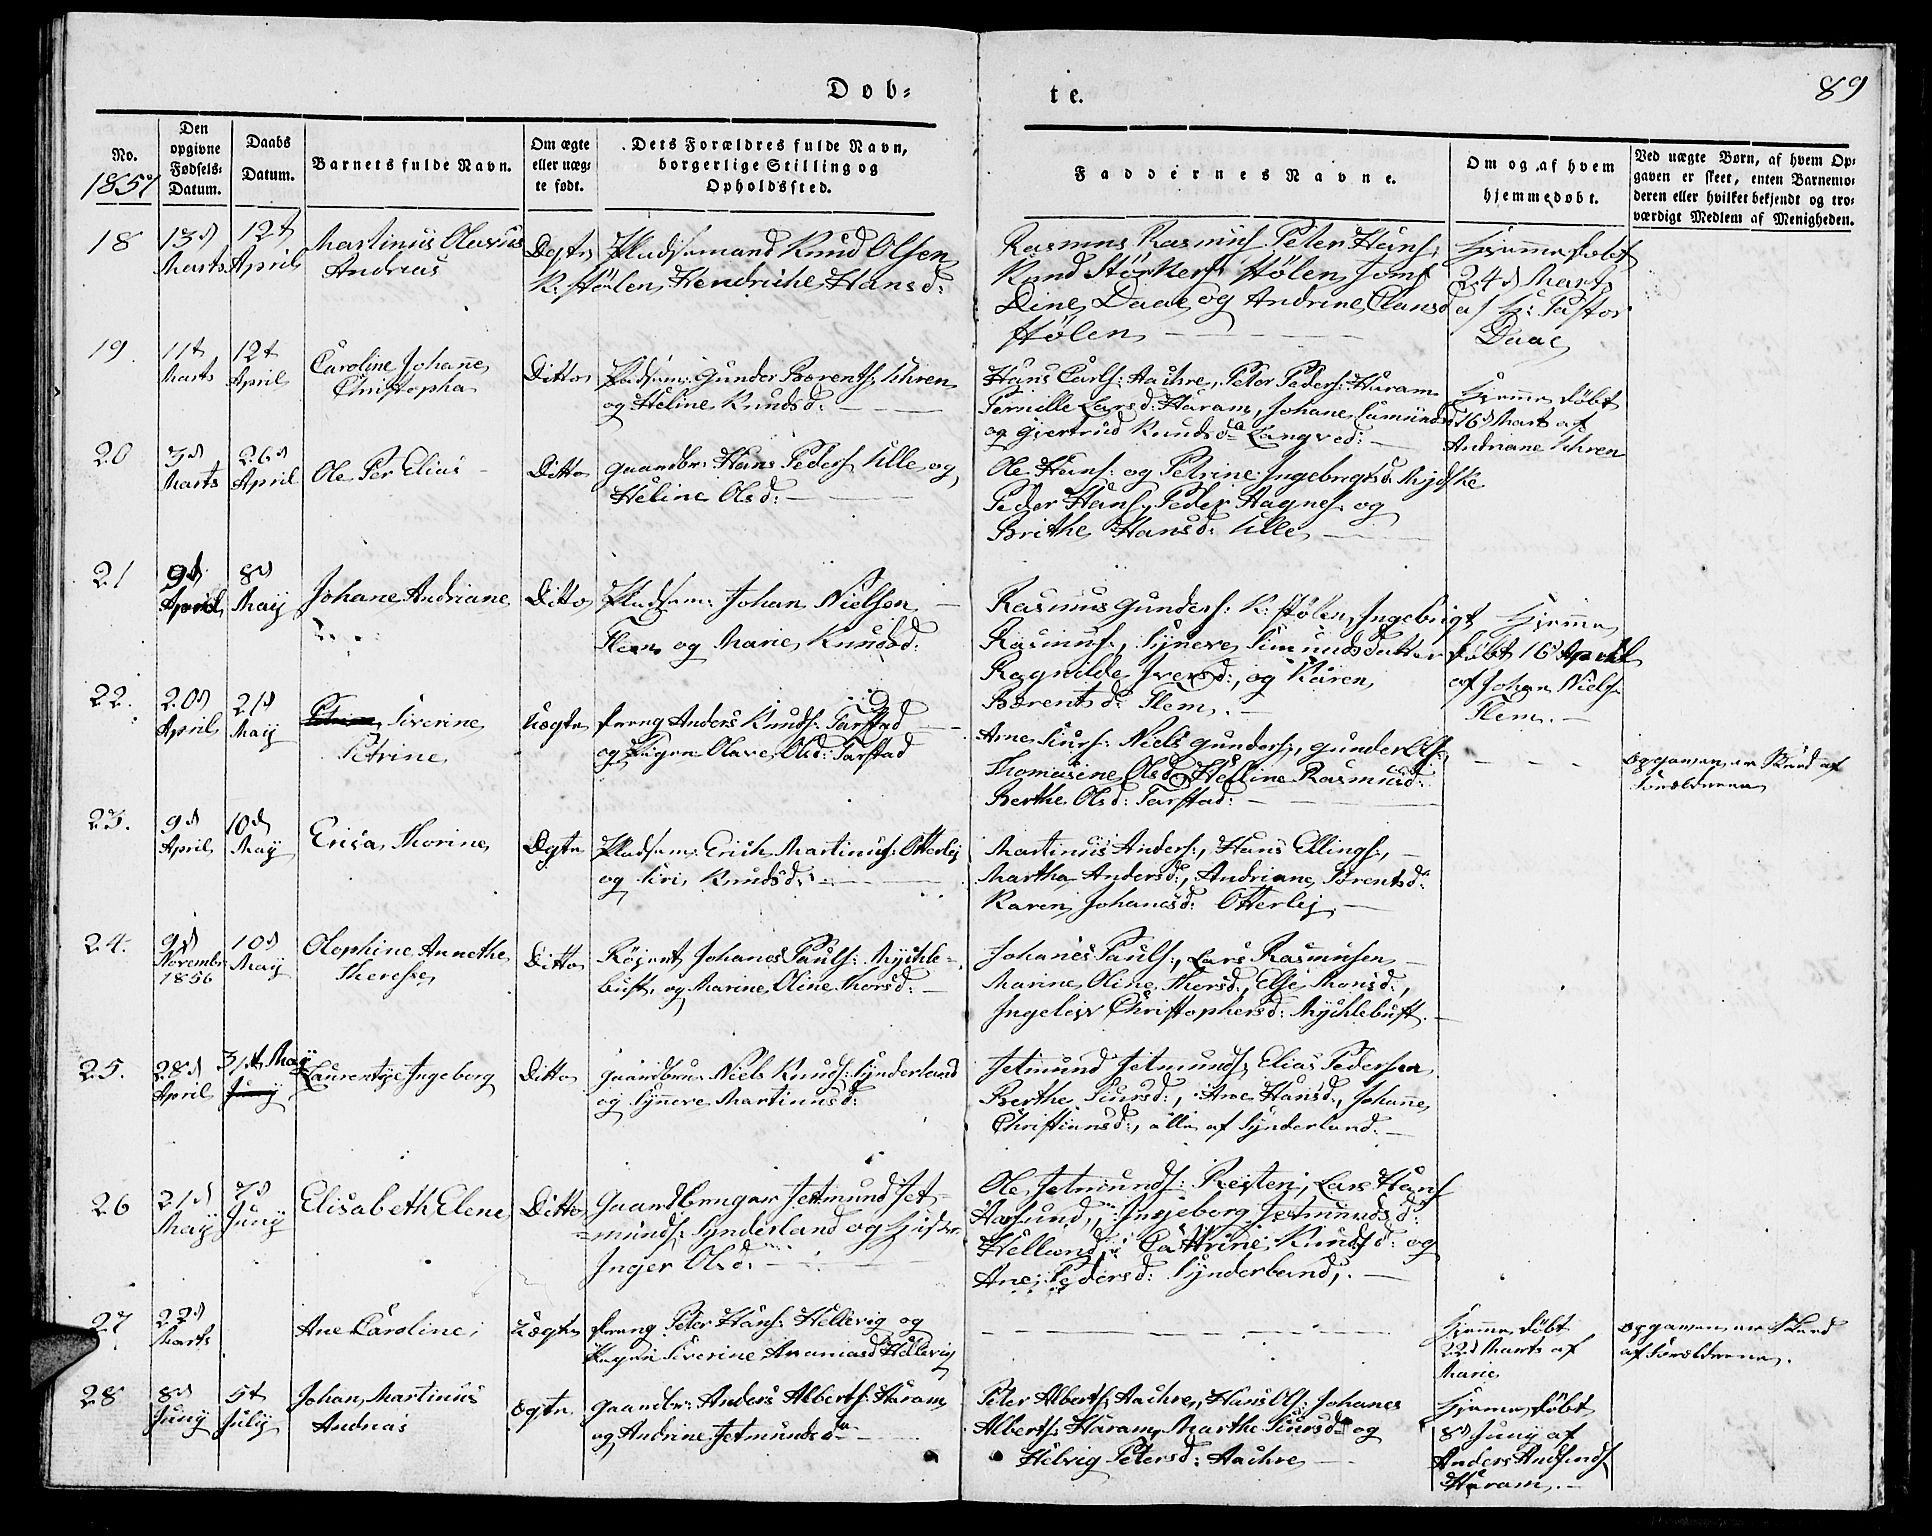 Døb=
te.
89
No.
1857
Den
opgivne
Fødsels=
Datum.
Daabs
Datum.
Barnets fulde Navn.
Om ægte
eller uæg=
te født.
Dets Forældres fulde Navn,
borgerlige Stilling og
Opholdssted.
Faddernes Navne.
Om og af hvem
hjemmedøbt.
Ved uægte Børn, af hvem Op=
gaven er skeet, enten Barnemo=
deren eller hvilket bekjendt og tro=
værdigt Medlem af Menigheden.
18
13d
Marts
12t
April
Martinus Olavus
Andreas
Ægte
Pladsemand Knud Olsen
K: Stølen, Hendrikke Hansd:
Rasmus Rasmus. Peter Hans:
Knud Størkers: Stølen, Jomf
Dine Daae og Andrine Clausd
Stølen
Hjemmedøbt
24d Marts
af H: Pastor
Daae
19
11t
Marts
12t
April
Caroline Johanne
Christopha
Ditto
Pladsem: Gunder Borents. Uhren
og Heline Knudsd:
Hans Carls: Aachre, Peter Peders: Haram
Pernille Larsd: Haram, Johane Samundsd
og Giertrud Knudsd Langved:
Hjemmedøbt
16d Marts af
Andriane Uhren
20
3d
Marts
26d
April
Ole Per Elias
Ditto
Gaardbr: Hans Peders Ulle og
Heline Olsd:
Ole Hans: og Petrine Ingebrigtsd. Myhlske
Peder Hans, Peder Hagnes. og
Brithe Hansd: Ulle
21
9d
April
8d
May
Johane Andriane
Ditto
Pladsem: Johan Nielsen
Flem og Marie Knudsd:
Rasmus Gunders: K: Stølen, Ingebrigt
Rasmus, Synneve Simunds Datter
Ragnilde Iversd:, og Karen
Borentsd: Flem.
Hjemme
døbt 16 April
af Johan Niels:
Flem.
22.
20d
April
21d
May
Siverine
Petrine
Uægte
Dreng Anders Knuds: Farstad
og Pigen Olave Olsd: Farstad
Arne Siurs: Niels Gunders:, Gunder Ols:
Thomasine Olsd, Helline Rasmusd:
Berthe Olsd: Farstad:
Opgaven er skeed af
Forældrene
23.
9d
April
10d
May
Erica Thorine
Ægte
Pladsem: Erich Martinus: Otterlej
og Siri Knudsd:
Martinus Anders:, Hans Ellings:,
Martha Andersd:, Andriane Sørentsd:
Karen Johanesd: Otterlej
24.
9d
Novembr
1856
10d
May
Olophine Annethe
Therese
Ditto
Røgent Johanes Pauls: Mychle=
bust, og Marine Oline Thorsd:
Johanes Pauls:, Lars Rasmusen
Marine Oline Thorsd:, Else Monsd:,
Ingeleiv Christophersd: Mychlebust.
25.
28d
April
31t May
Juny
Laurentze Ingeborg
Ditto
Gaardbru: Niels Knuds: Synderland
og Synneve Martinusd:
Jetmund Jetmunds, Elias Pedersen
Berthe Siursd:, Ane Hansd:, Johanne
Christiansd:, alle af Synderland.
26
21d
May
7d
Juny
Elisabeth Elene
Ditto
Gaardbruger Jetmund Jet=
=munds: Synderland og Hustru
Inger Olsd:
Ole Jetmunds: Reisten, Lars Hans
Hassund, Ingeborg Jetmundsd:
Helland, Cathrine Knudsd: og
Ane Pedersd: Synderland.
27
22d
Marts
Ane Caroline
Uægte
Dreng Peter Hans: Hellevig og
Pigen Siverine Ananiasd Hellevig
Hjemmedøbt
22d Marts af
Marie
Opgaven er skeed
af Forældrene.
28
8d
Juny
5t
July
Johan Martinus
Andreas
Ægte
Gaardbr: Anders Alberts: Haram
og Andrine Jetmundsd
Peter Alberts: Aachre, Hans Ols: Johanes
Alberts. Haram, Marthe Siursd og
Helvig Petersd: Aachre
Hjemmedøbt
8d Juny af
Anders
Haram.